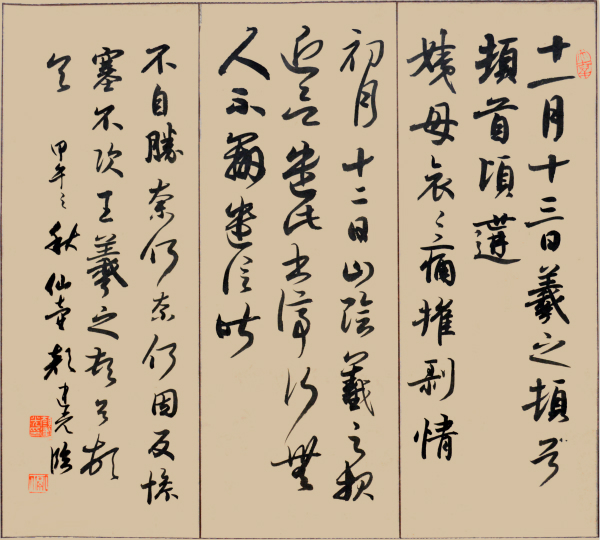 十一月十三日羲之頓首
頓首頃遘
姨母哀々痛摧剝情
初月十二日山陰羲之報
近欲遣此書停行無
人不辦遣信昨
不自勝奈何奈何因反慘
塞不次王羲之頓首頓
首 甲午之秋 仙 建亮臨